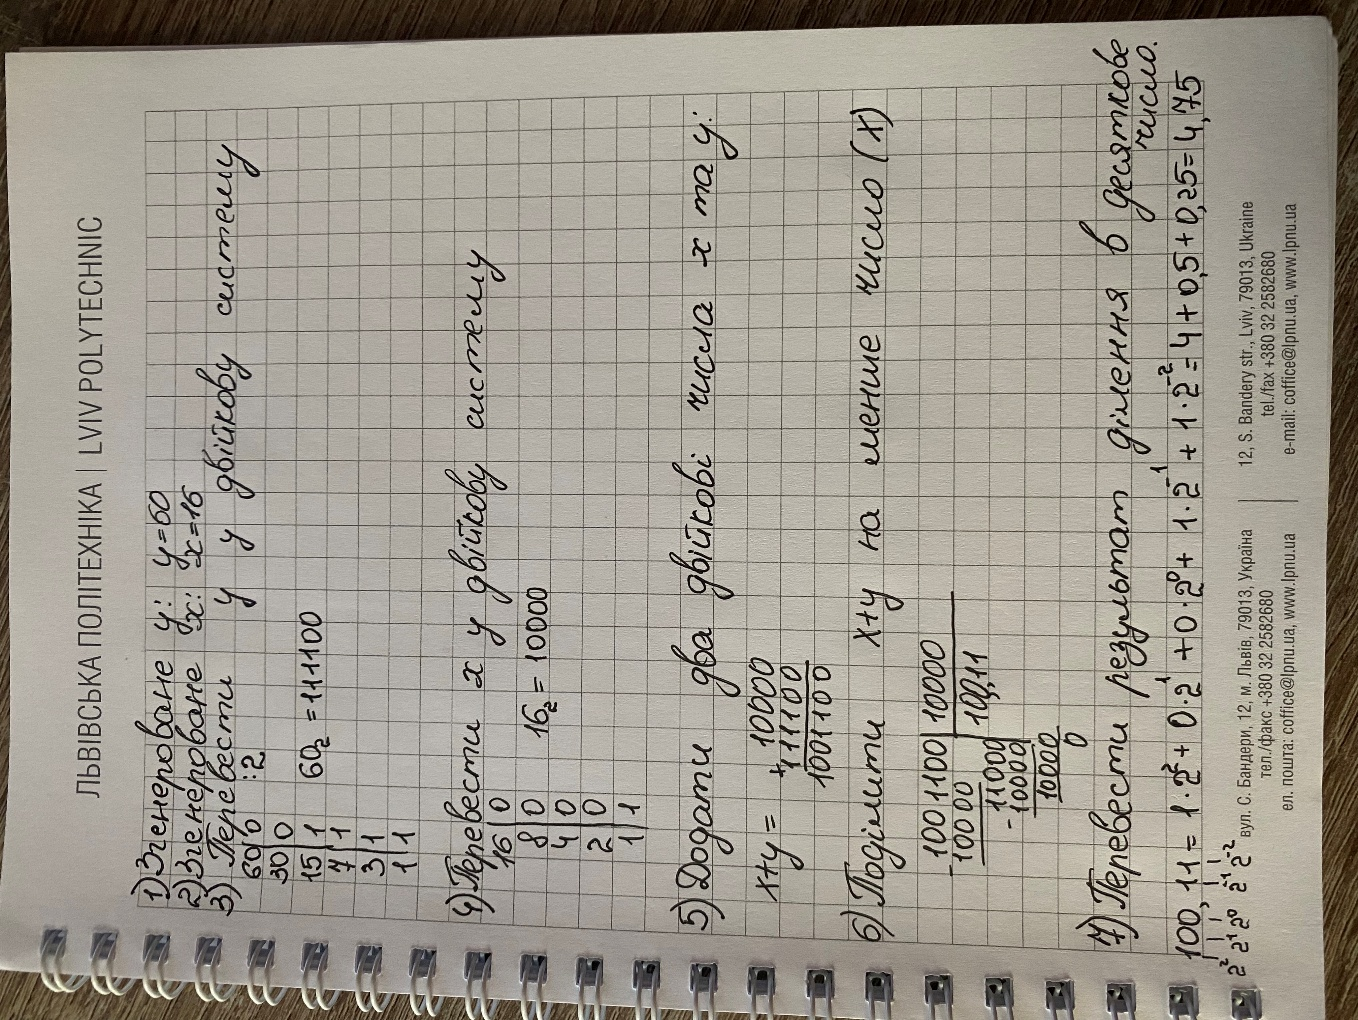 ЛЬВІВСЬКА ПОЛІТЕХНІКА | LVIV POLYTECHNIC
1) Згенероване y: y=60
2) Згенероване x: x=16
3) Перевести y у двійкову систему
60|0 :2
30|0
15|1 60₂ = 111100
7|1
3|1
1|1
4) Перевести x у двійкову систему
16|0
8|0 16₂ = 10000
4|0
2|0
1|1
5) Додати два двійкові числа x та y:
x+y = 10000
+111100
1001100
6) Подімити x+y на менше число (x)
-1001100|10000
10000 100,11
-11000
10000
10000
0
7) Перевести результат ділення в десяткове
число.
100,11 = 1·2² + 0·2¹ + 0·2⁰ + 1·2⁻¹ + 1·2⁻² = 4 + 0,5 + 0,25 = 4,75
2² 2¹ 2⁰ 2⁻¹ 2⁻²
вул. С. Бандери, 12, м. Львів, 79013, Україна
тел./факс +380 32 2582680
ел. пошта: coffice@lpnu.ua, www.lpnu.ua
12, S. Bandery str., Lviv, 79013, Ukraine
tel./fax +380 32 2582680
e-mail: coffice@lpnu.ua, www.lpnu.ua